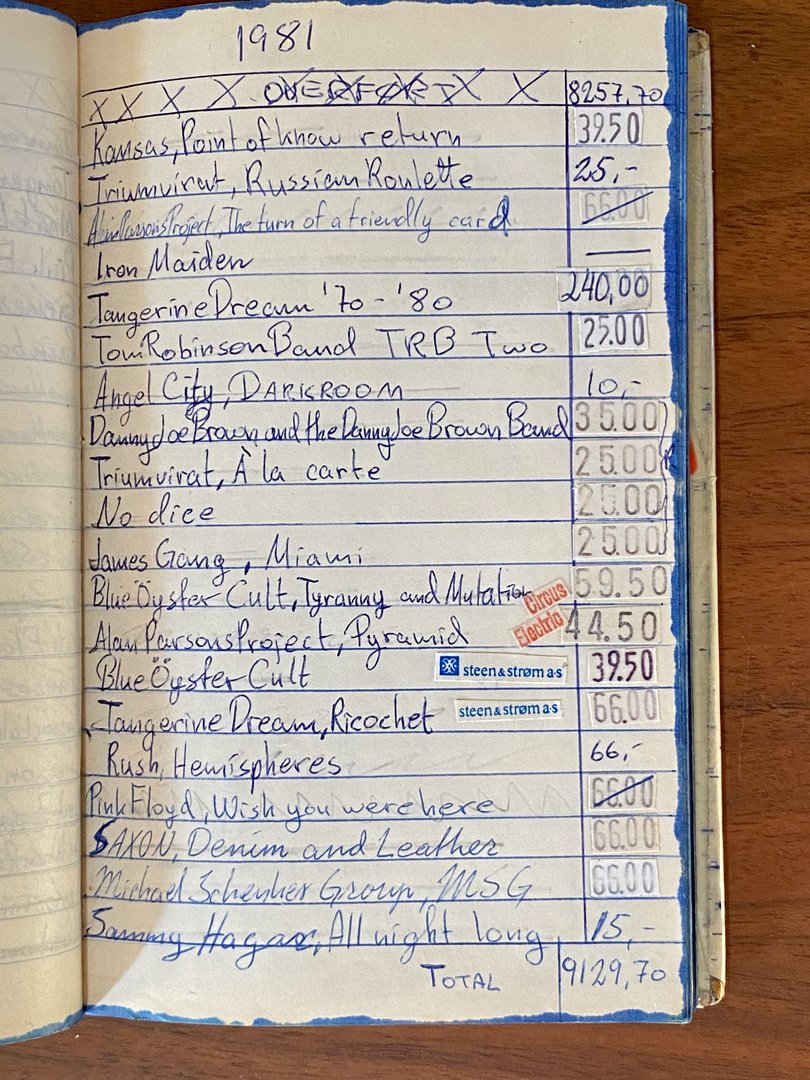 1981
X X X X OVERFØRT X X 8257,70
Kansas, Point of know return 39.50
Triumvirat, Russian Roulette 25,-
Alan Parsons Project, The turn of a friendly card 66.00
Iron Maiden —
Tangerine Dream '70 - '80 240,00
Tom Robinson Band TRB Two 25.00
Angel City, DARKROOM 10,-
Danny Joe Brown and the Danny Joe Brown Band 35.00
Triumvirat, À la carte 25.00
No dice 25.00
James Gang, Miami 25.00
Blue Öyster Cult, Tyranny and Mutation Circus 59.50
Alan Parsons Project, Pyramid Electric 44.50
Blue Öyster Cult steen & strøm a·s 39.50
Tangerine Dream, Ricochet steen & strøm a·s 66.00
Rush, Hemispheres 66,-
Pink Floyd, Wish you were here 66.00
SAXON, Denim and Leather 66.00
Michael Schenker Group, MSG 66.00
Sammy Hagar, All night long 15,-
TOTAL 9129,70